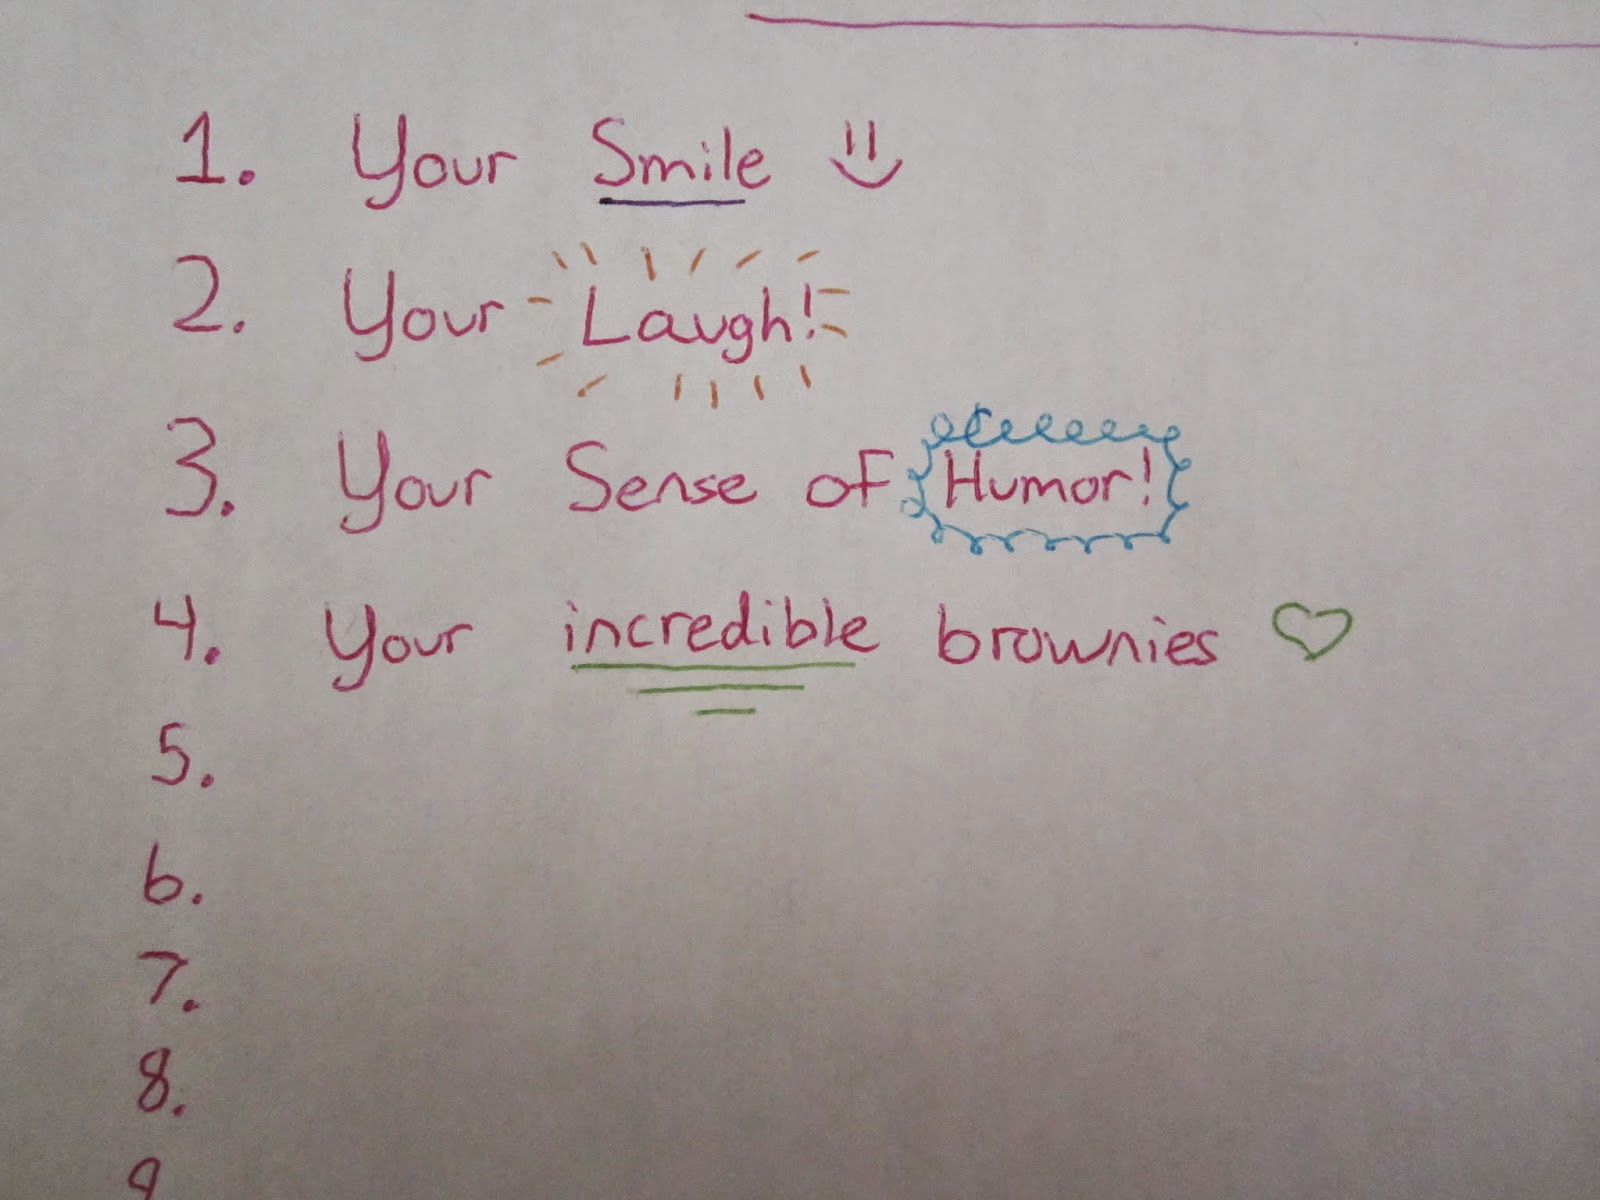 1. Your Smile
2. Your Laugh!
3. Your Sense of Humor!
4. Your incredible brownies
5.
6.
7.
8.
9